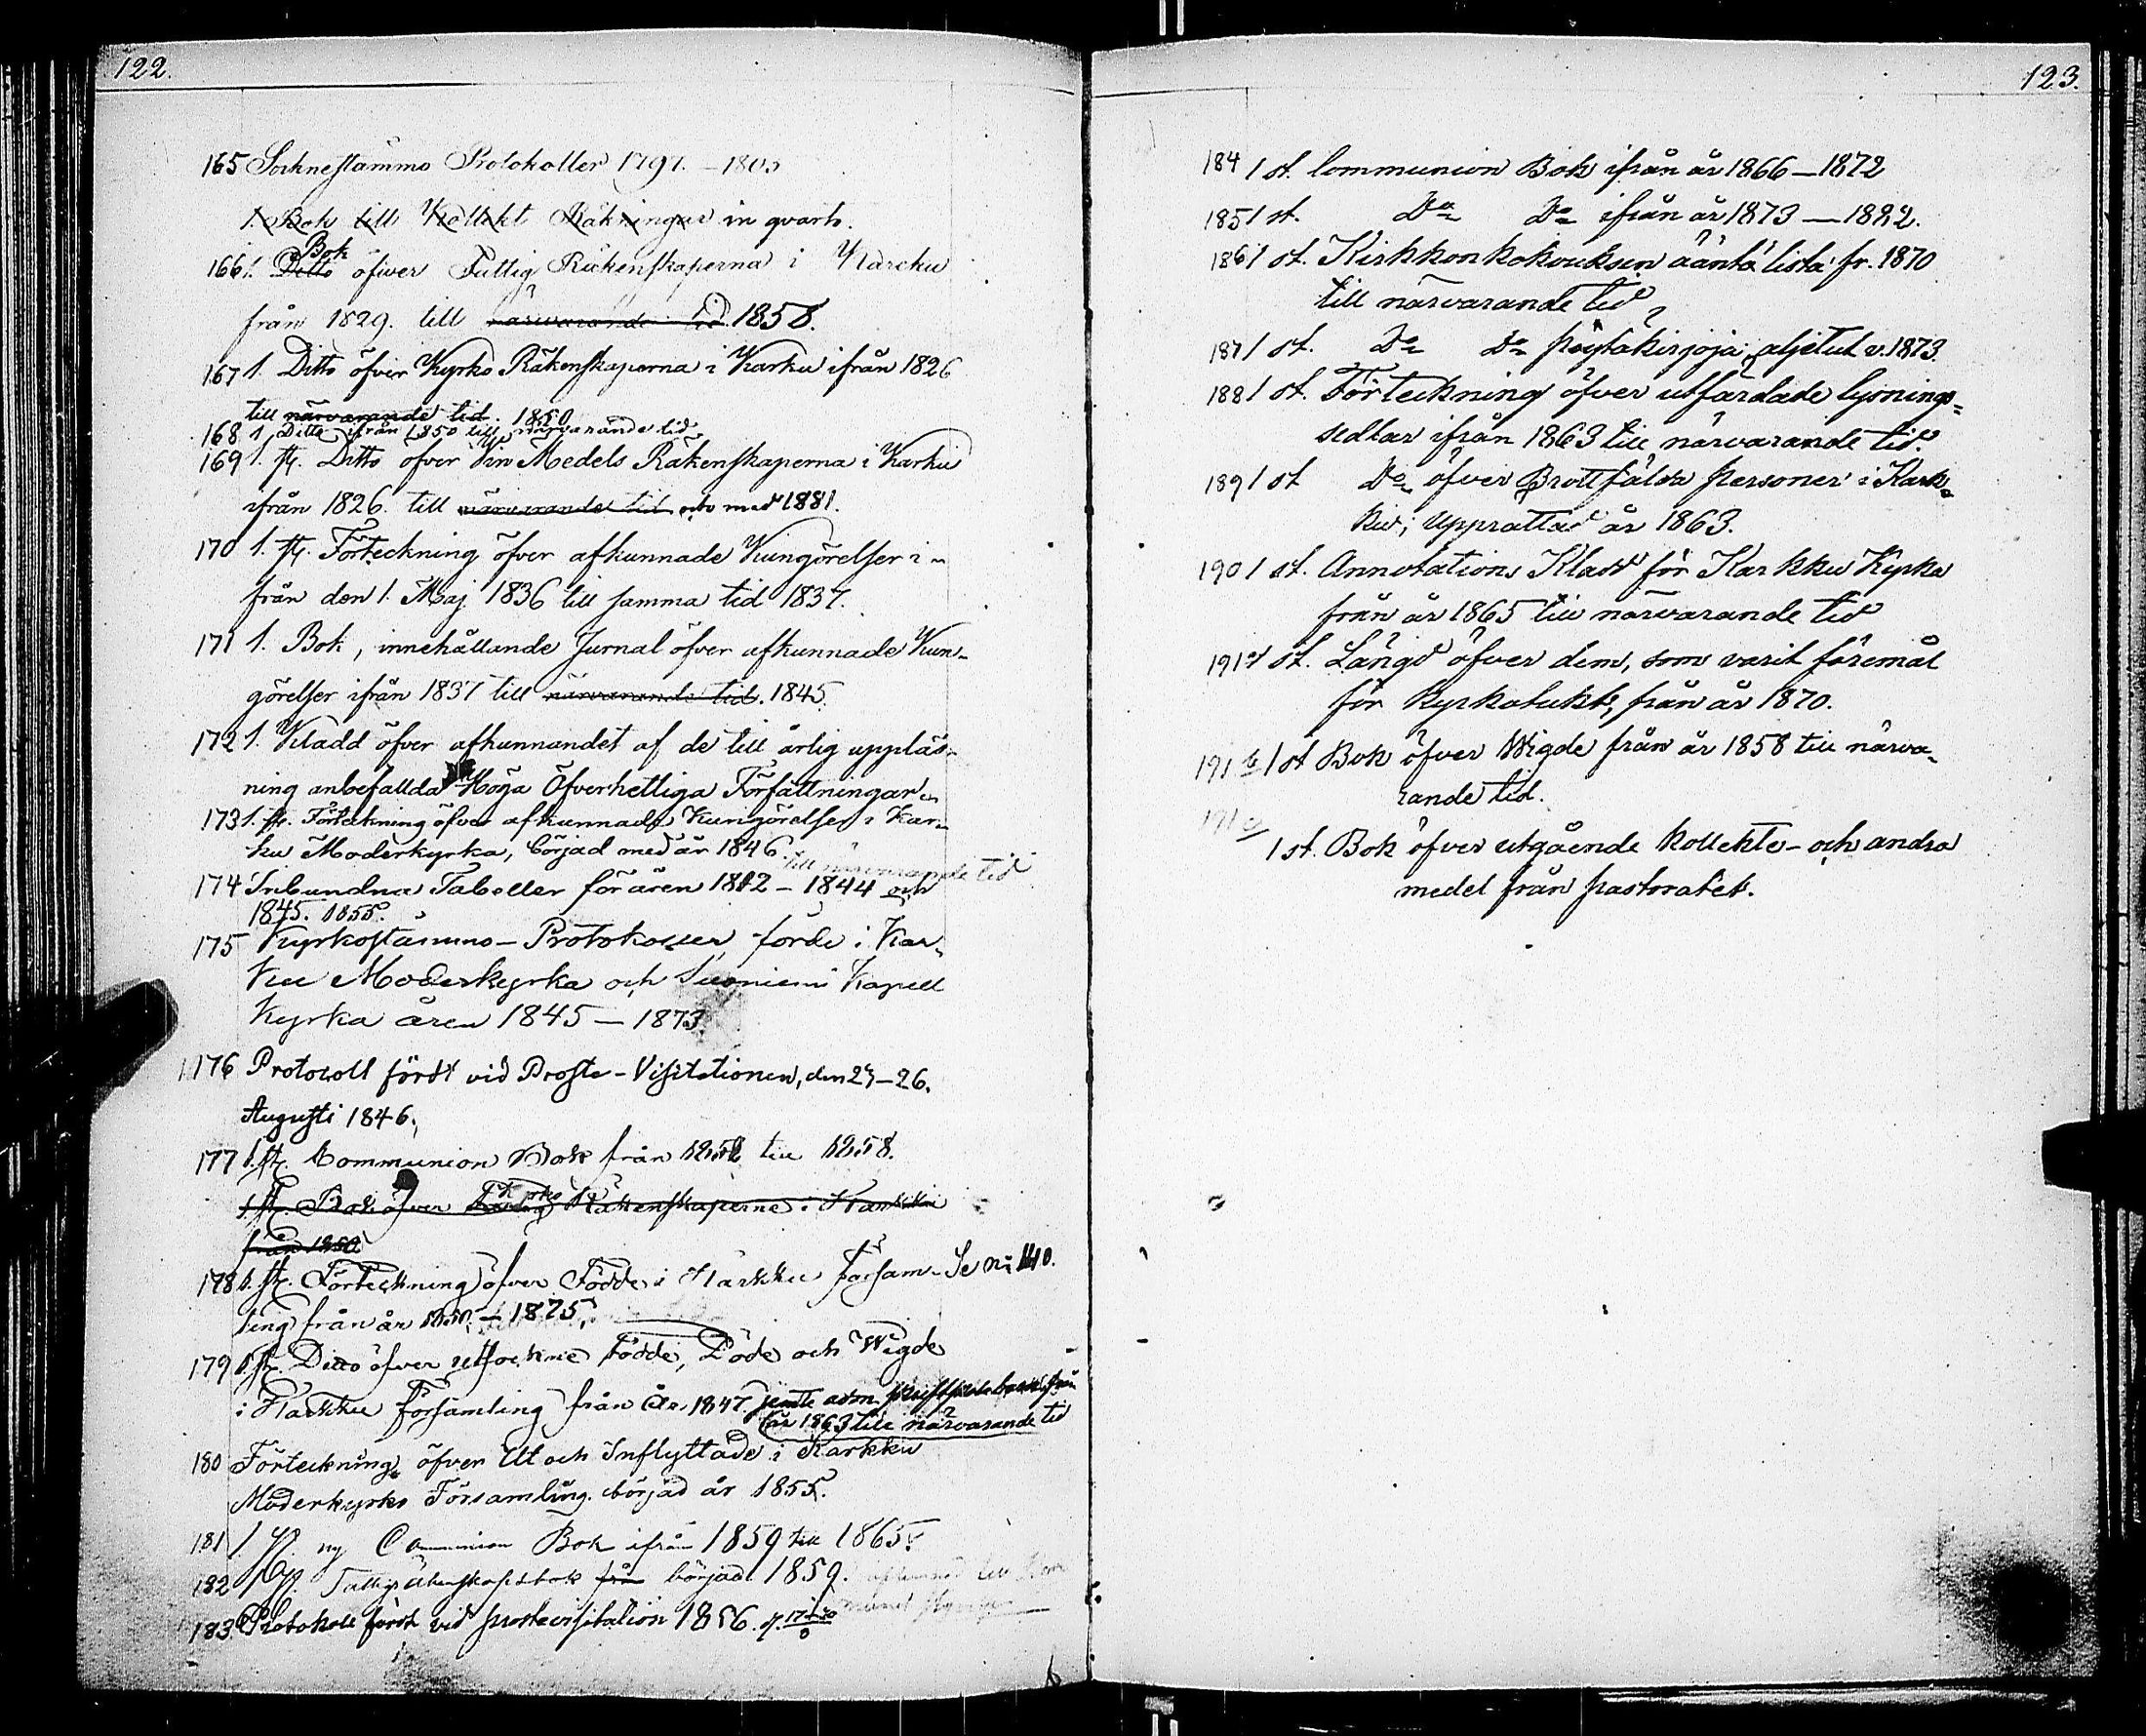 122.
165 Sockenstämmo Protokoller 1797. – 1805
1. Bok till Kollekt Räkningar in qvarto.
166 1. Ditto Bok öfwer Fattig Räkenskaperna i Karcku
från 1829. till närwarande tid. 1858.
167 1. Ditto öfver Kyrko Räkenskaperna i Karku ifrån 1826
till närvarande tid. 1850
168 1. Ditto ifrån 1850 till närvarande tid
169 1. st. Ditto öfver Vin Medels Räkenskaperna i Karku
ifrån 1826. till närvarande tid och med 1881.
170 1. st. Förteckning öfver afkunnade Kungörelser i-
från den 1. Maj 1836 till samma tid 1837.
171 1. Bok, innehållande Jurnal öfver afkunnade Kun-
görelser ifrån 1837 till närvarande tid. 1845.
172 1. Kladd öfver afkunnandet af de till årlig uppläs-
ning anbefallda Höga Öfverhetliga Författningar.
173 1. st. Förteckning öfver afkunnade Kungörelser i Kar-
ku Moderkyrka, börjad med år 1846. till närvarande tid
174 Inbundna Tabeller för åren 1812 – 1844 och
1845. 1855.
175 Kyrkostämmo-Protokoller, förde i Kar-
ku Moderkyrka och Suoniemi Kapell
Kyrka åren 1845 – 1873.
176 Protocoll fördt vid Proste-Visitationen, den 25–26.
Augusti 1846.
177 1. st. Communion Bok från 1852 till 1858.
1. st. Bok öfver Kyrko Räkenskaperne i Karkku
från 1850
178 1. st. Förteckning öfver Födde i Karkku försam- Se No 110.
ling från år 1850 – 1875.
179 1. st. Ditto öfver utsockne födde, Döde och Wigde
i Karkku församling från år 1847. jemte adm.
år 1863 till närvarande tid
180 Förteckning öfver Ut och Inflyttade i Karkku
Moderkyrko Församling. börjad år 1855.
181 1. st. ny Communion Bok ifrån 1859 till 1865.
182 1 st. Fattigräkenskapsbok från börjad 1859. till Kom
183. Protokoll fördt vid prostevisitation 1856.
123.
184 1 st. Communion Bok ifrån år 1866 – 1872
185 1 st. Do Do ifrån år 1873 – 1882.
186 1 st. Kirkkonkokouksen ääntä lista fr. 1870
till närvarande tid
187 1 st. Do Do pöytäkirjoja, aljetut v. 1873.
188 1 st. Förteckning öfver utfärdade lysnings-
sedlar ifrån 1863 till närvarande tid.
189 1 st Do öfver Brottfälda personer i Kark-
ku; upprättad år 1863.
190 1 st. Annotations Kladd för Karkku Kyrka
från år 1865 till närvarande tid
191 a 1 st. Längd öfver dem, som varit föremål
för kyrkotukt, från år 1870.
191 b 1 st Bok öfver Wigde från år 1858 till närva-
rande tid.
191 c
1 st. Bok öfver utgående kollekte- och andra
medel från pastoratet.